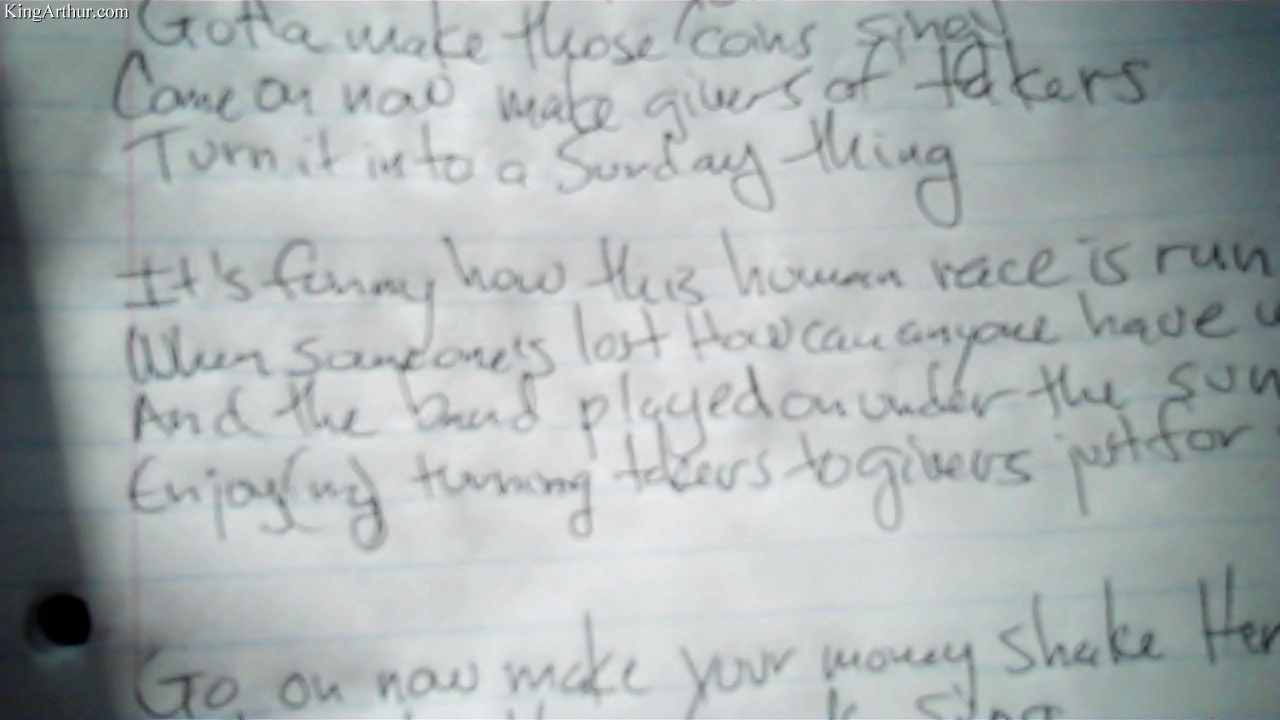 KingArthur.com
Gotta make those coins sing
Come on now make givers of takers
Turn it into a Sunday thing
It's funny how this human race is run
When someone's lost How can anyone have
And the band played on under the sun
Enjoy(ing) turning takers to givers just for
Go on now make your money shake